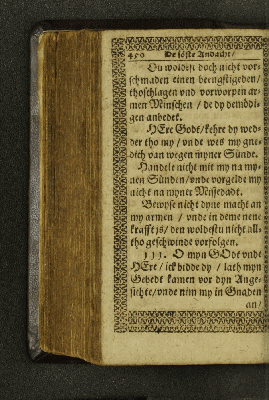 450 De söste Andacht/
Du woldest doch nicht vor-
schmaden einen beengstigeden/
thoschlagen vnd vorworpen ar-
men Minschen / de dy demödi-
gen anbedet.
HEre Godt/kehre dy wed-
der tho my / vnde wes my gne-
dich van wegen myner Sünde.
Handele nicht mit my na my-
nen Sünden/vnde vorgelde my
nicht na myner Missedadt.
Bewyse nicht dyne macht an
my armen / vnde in deme nene
krafft ys/ den woldestu nicht all-
tho geschwinde vorfolgen.
III. O myn GOdt vnde
HEre / ick bidde dy / lath myn
Gebedt kamen vor dyn Ange-
sichte/vnde nim my in Gnaden
an/